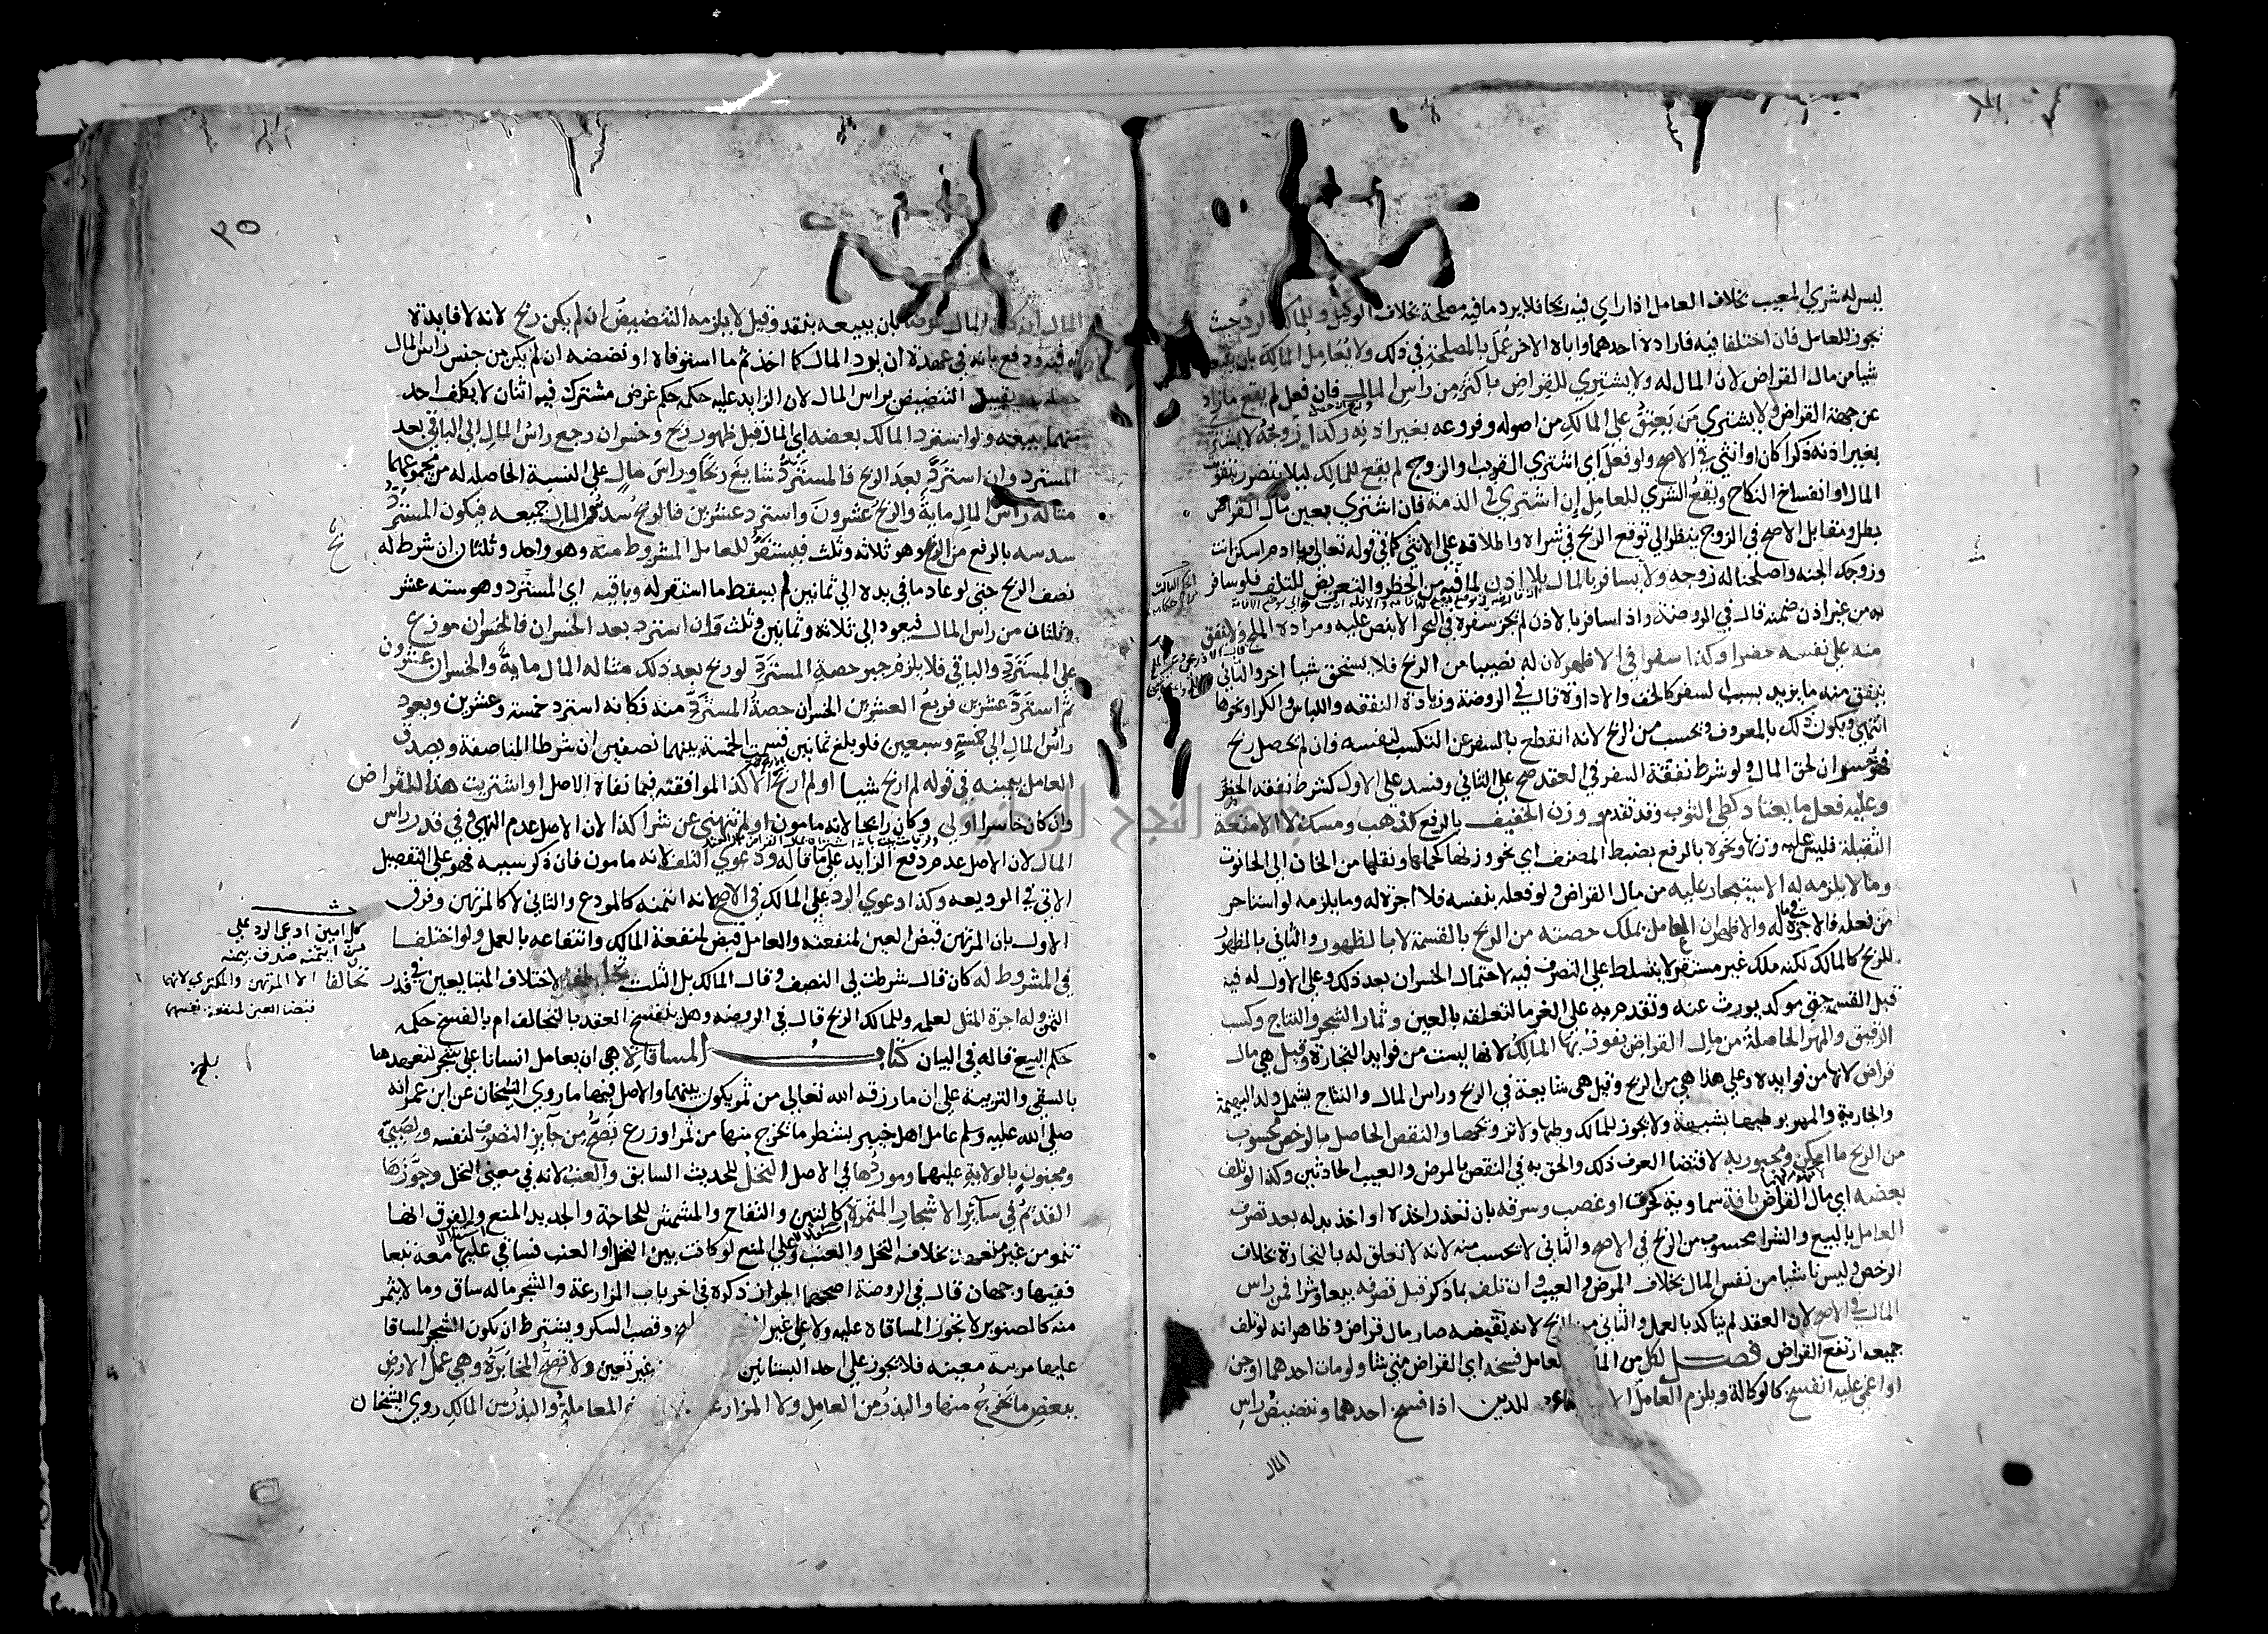 ليس له شري المعيب بخلاف العامل اذا راي فيه ربحا فلا يرد ما فيه مصلحة بخلاف الوكيل وللمالك الرد حيث
يجوز للعامل فان اختلفا فيه فاراده احدهما واباه الاخر عمل بالمصلحة في ذلك ولا يعامل المالك بان يبيعه
شيا من مال القراض لان المال له ولا يشتري للقراض باكثر من راس المال فان فعل لم يقع ما زاد
عن جهة القراض ولا يشتري من يعتق علي المالك من اصوله وفروعه بغير اذنه وكذا زوجه لا يشتريه
بغير اذنه ذكرا كان او انثي في الاصح ولو فعل اي اشتري القريب او الزوج لم يقع للمالك ليلا يتضرر بتفويت
المال او انفساخ النكاح ويقع الشري للعامل ان اشتري في الذمة فان اشتري بعين مال القراض
بطل ومقابل الاصح في الزوج ينظر الي توقع الربح في شراه واطلاقه علي الانثي كما في قوله تعالي يا ادم اسكن انت
وزوجك الجنه واصلحنا له زوجه ولا يسافر بالمال بلا اذن لما فيه من الخطر والتعريض للتلف فلو سافر
به من غير اذن ضمنه قال في الروضة واذا سافر بالاذن لم يجز سفره في البحر الا بنص عليه ومراده الملح ولا ينفق
منه علي نفسه حضرا وكذا سفرا في الاظهر لان له نصيبا من الربح فلا يستحق شيا اخر والثاني
ينفق منه ما يزيد بسبب السفر كالخف والاداوة قال في الروضة وزيادة النفقه واللباس والكرا ونحوها
انتهي ويكون ذلك بالمعروف يحسب من الربح لانه انقطع بالسفر عن التكسب لنفسه فان لم يحصل ربح
فهو خسران لحق المال ولو شرط نفقة السفر في العقد صح علي الثاني وفسد علي الاول كشرط نفقة الحضر
وعليه فعل ما يعتاد كطي الثوب وقد تقدم ووزن الخفيف بالرفع كذهب ومسك لا الامتعة
الثقيلة فليس عليه وزنها ونحوه بالرفع بضبط المصنف اي نحو وزنها كحملها ونقلها من الخان الي الحانوت
وما لا يلزمه له الاستيجار عليه من مال القراض ولو فعله بنفسه فلا اجرة له وما يلزمه لو استاجر
من فعله فالاجرة له والاظهر ان العامل يملك حصته من الربح بالقسمة لا بالظهور والثاني بالظهور
للربح كالمالك لكنه ملك غير مستقر لا يتسلط علي التصرف فيه لاحتمال الخسران بعد ذلك وعلي الاول له فيه
قبل القسمة حق موكد يورث عنه وتقدم به علي الغرما لتعلقه بالعين وثمار الشجر والنتاج وكسب
الرقيق والمهر الحاصلة من مال القراض يفوز بها المالك لانها ليست من فوايد التجارة وقيل هي مال
قراض لانها من فوايده وعلي هذا هي من الربح وقيل هي شايعة في الربح وراس المال والنتاج يشمل ولد البهيمة
والجارية والمهر بوطيها بشبهة ولا يجوز للمالك وطيها ولا تزويجها والنقص الحاصل بالرخص محسوب
من الربح ما امكن ومجبور به لاقتضا العرف ذلك والحق به في النقص بالمرض والعيب الحادثين وكذا لو تلف
بعضه اي مال القراض بافة سماوية كحرق او غصب وسرقه بان تعذر اخذه او اخذ بدله بعد تصرف
العامل بالبيع والشرا محسوب من الربح في الاصح والثاني لا يحسب منه لانه لا تعلق له بالتجارة بخلاف
الرخص وليس ناشيا من نفس المال بخلاف المرض والعيب وان تلف بما ذكر قبل تصرفه بيعا وشرا فمن راس
المال في الاصح لان العقد لم يتاكد بالعمل والثاني من الربح لانه بقبضه صار مال قراض وظاهر انه لو تلف
جميعه ارتفع القراض فصل لكل من العامل فسخه اي القراض متي شا ولو مات احدهما او جن
او اغمي عليه انفسخ كالوكالة ويلزم العامل للدين اذا فسخ احدهما وتنضيض راس
المال
٣٥
المال ان كان المال عرضا بان يبيعه بنقد وقيل لا يلزمه التنضيض ان لم يكن ربح لانه لا فايدة
فيه ودفع بانه في عهدة ان يرد المال كما اخذ ثم ما استوفاه او نضضه ان لم يكن من جنس راس المال
التنضيض براس المال لان الزايد عليه حكمه حكم عرض مشترك فيه اثنان لا يكلف احد
منهما بيعه ولو استرد المالك بعضه اي المال قبل ظهور ربح وخسران رجع راس المال الي الباقي بعد
المسترد وان استرد بعد الربح فالمسترد شايع ربحا وراس مال علي النسبة الحاصله له من مجموعهما
مثاله راس المال ماية والربح عشرون واسترد عشرين فالربح سدس المال جميعه فيكون المسترد
سدسه بالرفع من الربح وهو ثلاثه وثلث فيستقر للعامل المشروط منه وهو واحد وثلثان ان شرط له
نصف الربح حتي لو عاد ما في يده الي ثمانين لم يسقط ما استقر له وباقيه اي المسترد وهو سته عشر
وثلثان من راس المال فيعود الي ثلاثه وثمانين وثلث وان استرد بعد الخسران فالخسران موزع
علي المسترد والباقي فلا يلزم جبر حصة المسترد لو ربح بعد ذلك مثاله المال ماية والخسران عشرون
ثم استرد عشرين فربع العشرين الخسران حصة المسترد منه فكانه استرد خمسة وعشرين ويعود
راس المال الي خمسة وسبعين فلو بلغ ثمانين قسمت الخمسة بينهما نصفين ان شرطا المناصفة ويصدق
العامل بيمينه في قوله لم اربح شيا او لم اربح الا كذا لموافقته فيما نفاه الاصل او اشتريت هذا للقراض
وان كان خاسرا او لي وكان رابحا لانه مامون او لم تنهني عن شرا كذا لان الاصل عدم النهي وفي قدر راس
المال لان الاصل عدم دفع الزايد علي ما قاله ودعوي التلف لانه مامون فان ذكر سببه فهو علي التفصيل
الاتي في الوديعه وكذا دعوي الرد علي المالك في الاصح لانه ائتمنه كالمودع والثاني لا كالمرتهن وفرق
الاول بان المرتهن قبض العين لمنفعته والعامل قبض لمنفعة المالك وانتفاعه بالعمل ولو اختلفا
في المشروط له كان قال شرطت لي النصف وقال المالك بل الثلث لاختلاف المتبايعين في قدر
الثمن وله اجرة المثل لعمله وللمالك الربح قال في الروضه وهل ينفسخ العقد بالتحالف ام بالفسخ حكمه
حكم البيع قاله في البيان كتاب المساقاة هي ان يعامل انسانا علي شجر ليتعهدها
بالسقي والتربية علي ان ما رزقه الله تعالي من ثمر يكون بينهما والاصل فيها ما روي الشيخان عن ابن عمر انه
صلي الله عليه وسلم عامل اهل خيبر بشطر ما يخرج منها من ثمر او زرع تصح من جايز التصرف لنفسه ولصبي
ومجنون بالولاية عليهما وموردها في الاصل النخل للحديث السابق والعنب لانه في معني النخل وجوزها
القديم في سائر الاشجار المثمرة كالتين والتفاح والمشمش للحاجة والجديد المنع والفرق انها
تنمو من غير تعهد بخلاف النخل والعنب وعلي المنع لو كانت بين النخل او العنب فساقي عليها معه تبعا
ففيها وجهان قال في الروضة اصحهما الجواز ذكره في اخر باب المزارعة والشجر ما له ساق وما لا يثمر
منه كالصنوبر لا تجوز المساقاة عليه ولا علي غير وقصب السكر ويشترط ان يكون الشجر المساقا
عليها مرييه معينه فلا يجوز علي احد البستانين غير تعيين ولا تصح المخابرة وهي عمل الارض
ببعض ما يخرج منها والبذر من العامل ولا المزارعة المعاملة والبذر من المالك روي الشيخان
كل امين ادعي الرد علي
من ايتمنه صدق بيمينه
الا المرتهن والمكتري لانهما
قبضا العين لمنفعة نفسهما
تحالفا
بلغ